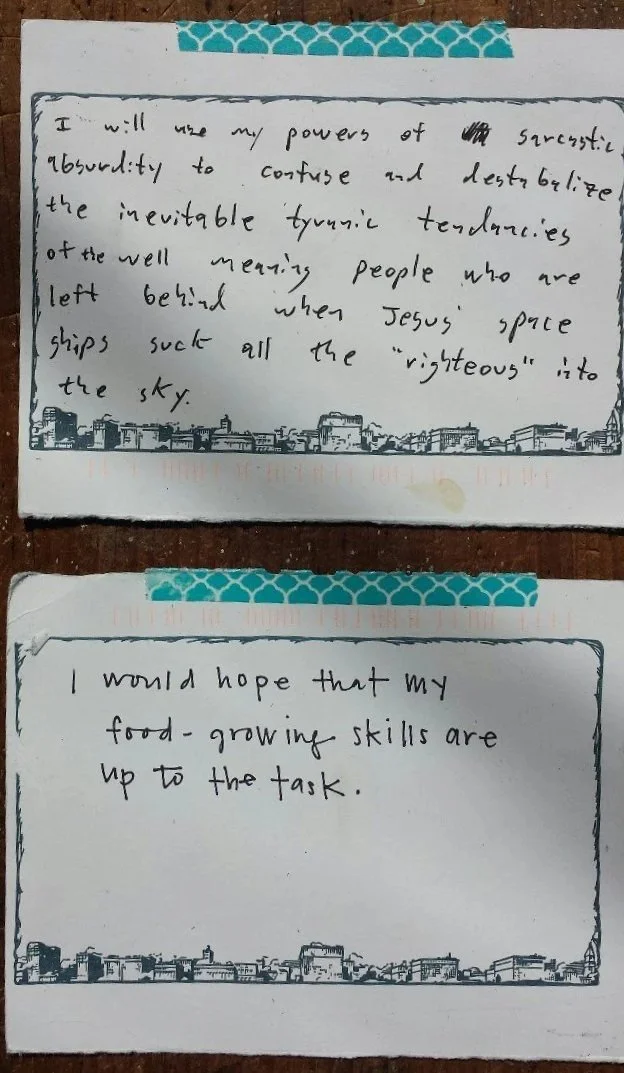 I will use my powers of sarcastic
absurdity to confuse and destabalize
the inevitable tyranic tendancies
of the well meaning people who are
left behind when Jesus' space
ships suck all the "righteous" into
the sky.
I would hope that my
food-growing skills are
up to the task.